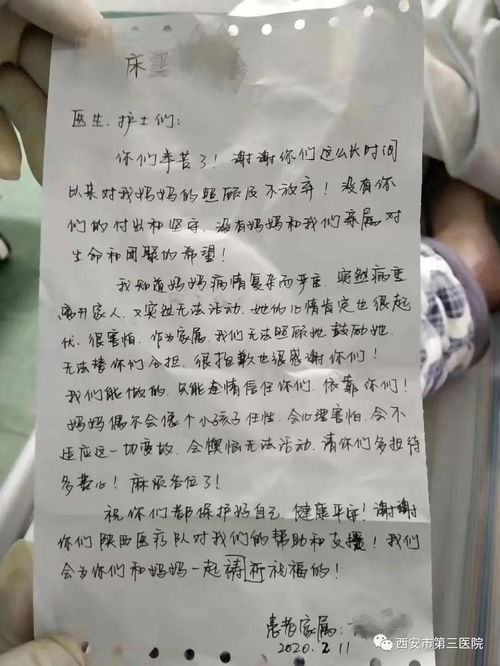 床
医生、护士们：
你们辛苦了！谢谢你们这么长时间
以来对我妈妈的照顾及不放弃！没有你
们的付出和坚守，没有妈妈和我们亲属对
生命和团聚的希望！
我知道妈妈病情复杂而严重，突然病重
离开家人，又突然无法活动，她的心情肯定也很起
伏、很害怕，作为家属，我们无法照顾她鼓励她，
无法替你们分担，很抱歉也很感谢你们！
我们能做的，只能尽情信任你们，依靠你们！
妈妈偶尔会像个小孩子任性，会心理害怕，会不
适应这一切变故，会懊恼无法活动，请你们多担待
多费心！麻烦各位了！
祝你们都保护好自己，健康平安！谢谢
你们陕西医疗队对我们的帮助和支援！我们
会为你们和妈妈一起祷祈祝福的！
患者家属：
2020.2.11
西安市第三医院